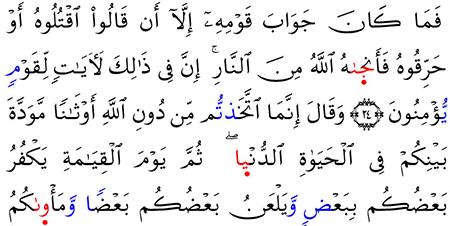 فَمَا كَانَ جَوَابَ قَوْمِهِۦٓ إِلَّآ أَن قَالُوا۟ ٱقْتُلُوهُ أَوْ
حَرِّقُوهُ فَأَنجَىٰهُ ٱللَّهُ مِنَ ٱلنَّارِ ۚ إِنَّ فِى ذَٰلِكَ لَءَايَٰتٍ لِّقَوْمٍ
يُؤْمِنُونَ ﴿٢٤﴾ وَقَالَ إِنَّمَا ٱتَّخَذتُّم مِّن دُونِ ٱللَّهِ أَوْثَٰنًا مَّوَدَّةَ
بَيْنِكُمْ فِى ٱلْحَيَوٰةِ ٱلدُّنْيَا ۖ ثُمَّ يَوْمَ ٱلْقِيَٰمَةِ يَكْفُرُ
بَعْضُكُم بِبَعْضٍ وَيَلْعَنُ بَعْضُكُم بَعْضًا وَمَأْوَىٰكُمُ